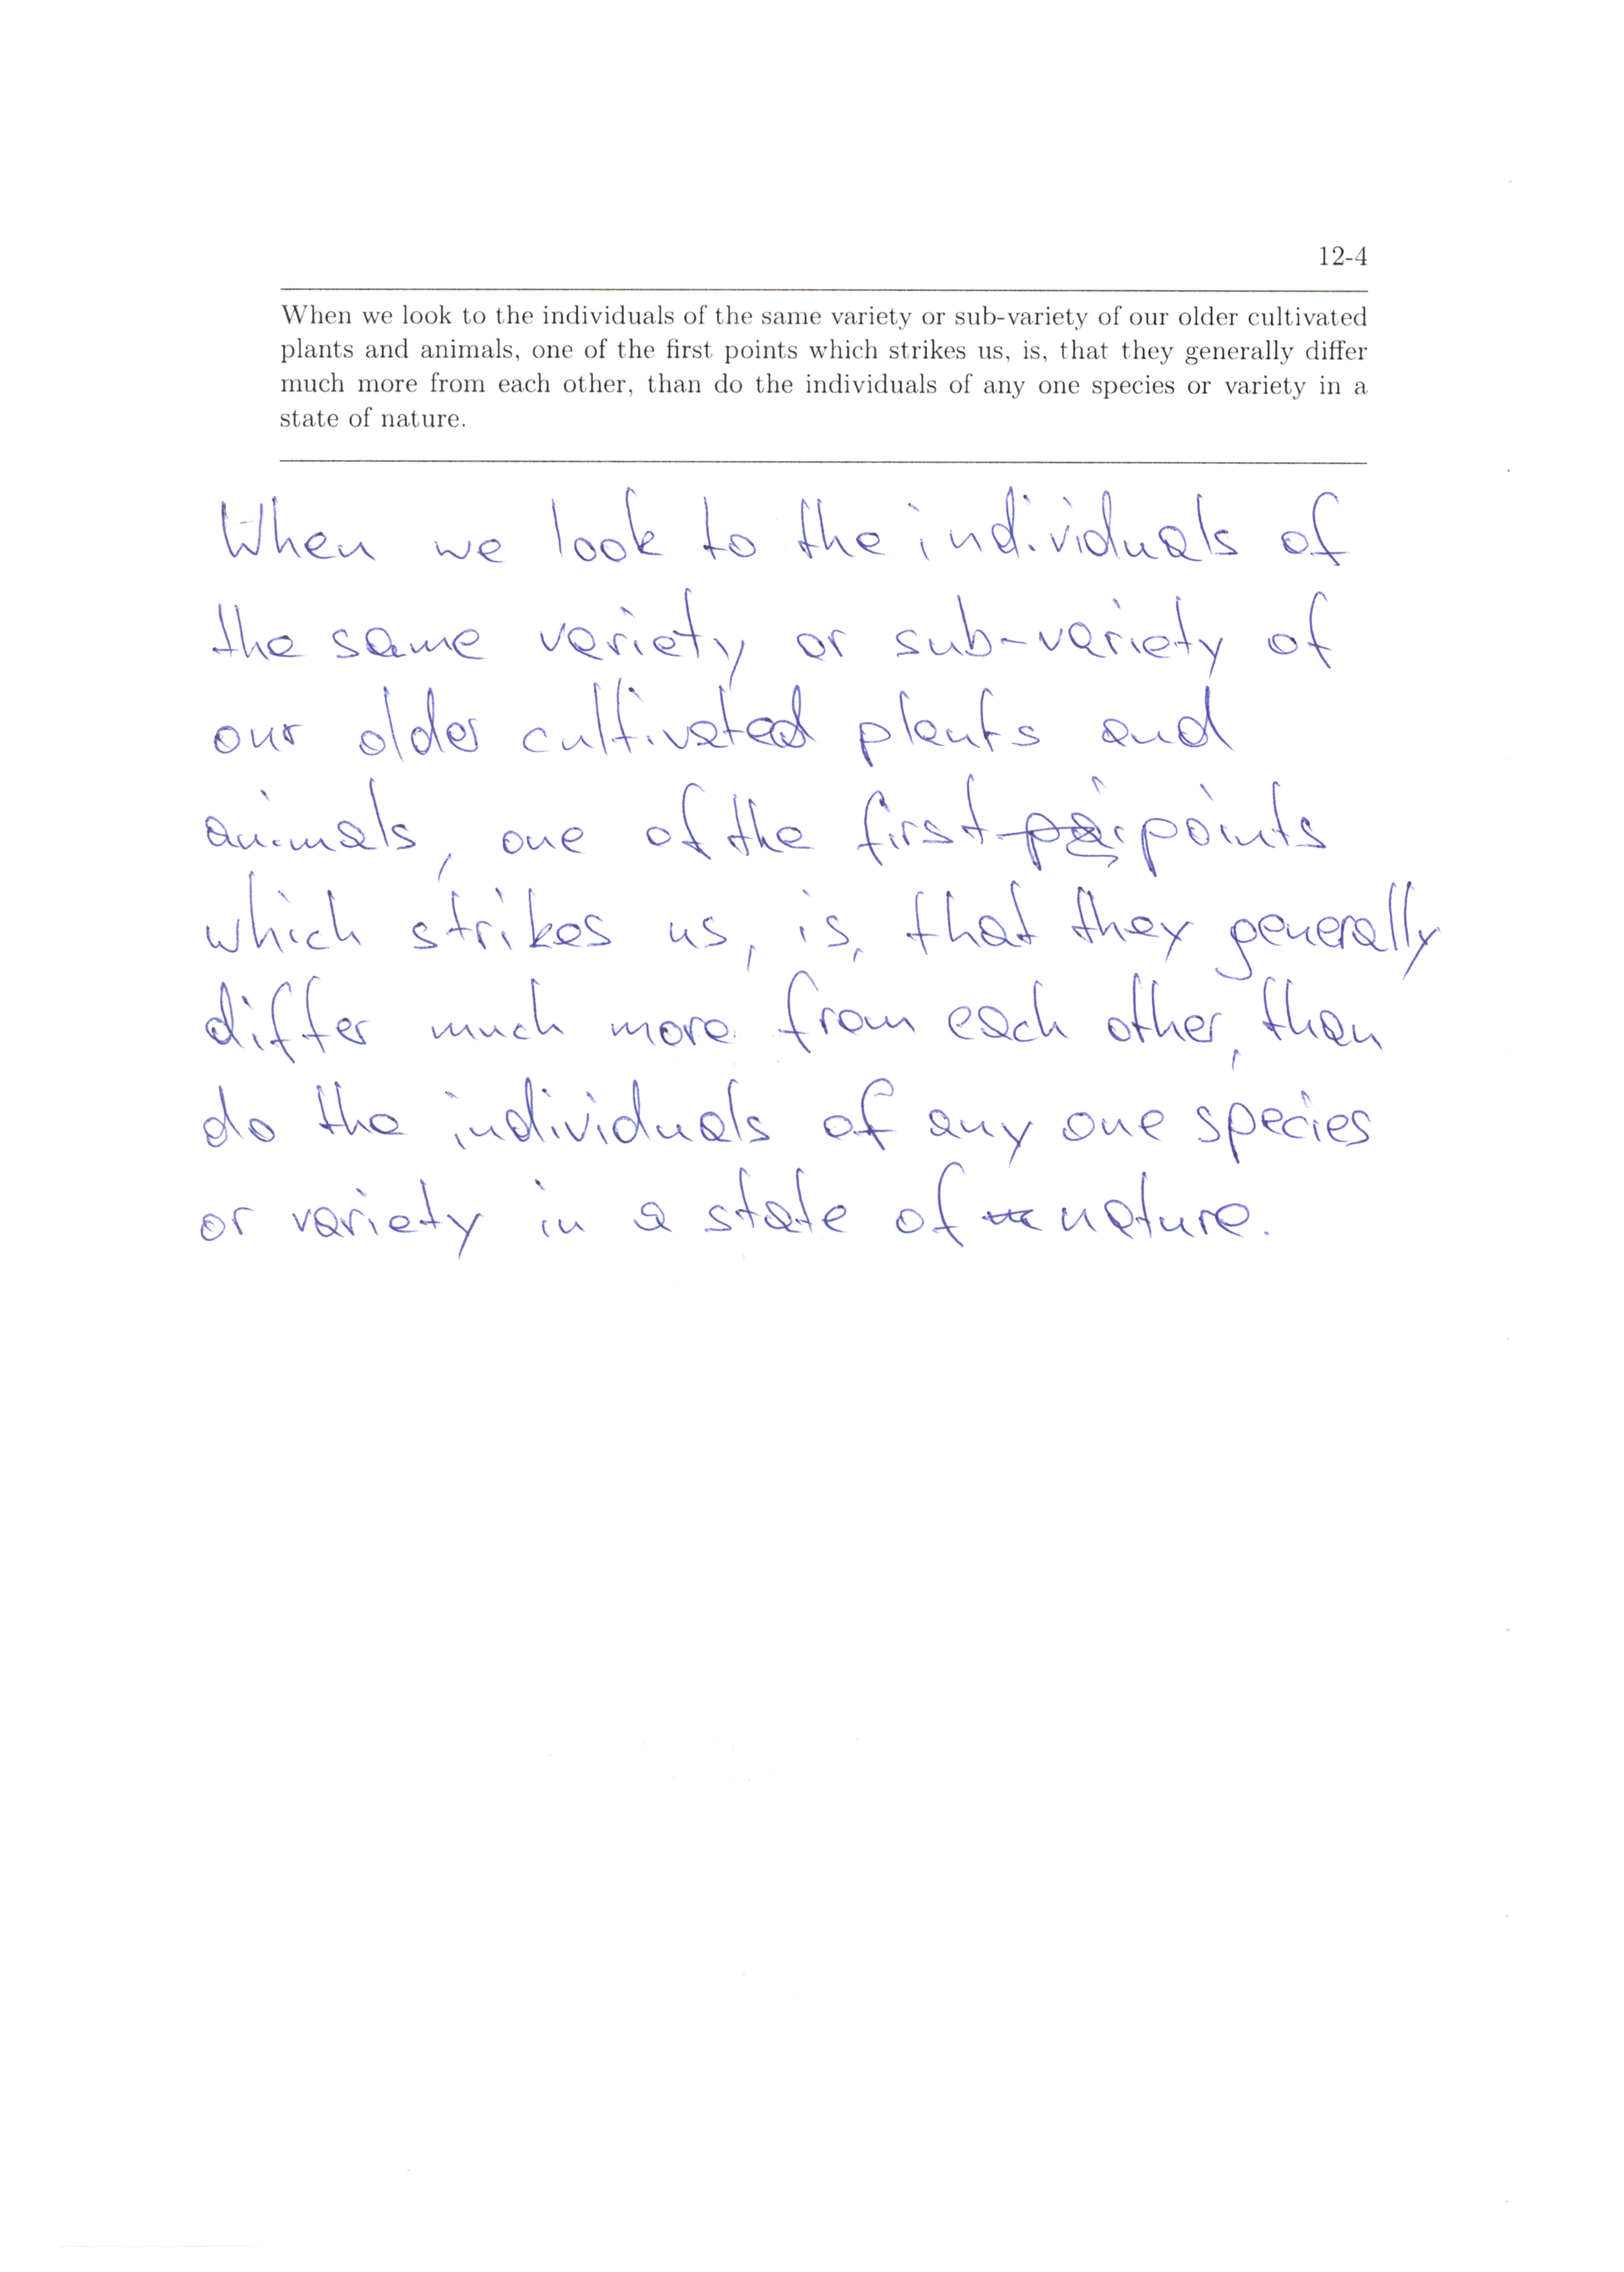 12-4
When we look to the individuals of the same variety or sub-variety of our older cultivated
plants and animals, one of the first points which strikes us, is, that they generally differ
much more from each other, than do the individuals of any one species or variety in a
state of nature.
When we look to the individuals of
the same variety or sub-variety of
our older cultivated plants and
animals, one of the first points
which strikes us, is, that they generally
differ much more from each other, than
do the individuals of any one species
or variety in a state of nature.